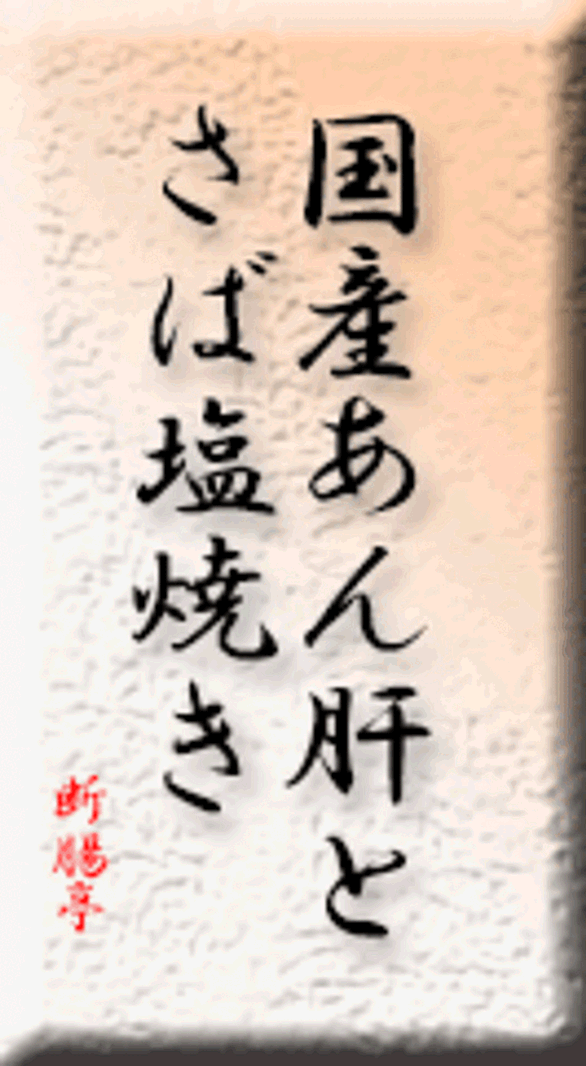 国産あん肝と
さば塩焼き
断腸亭